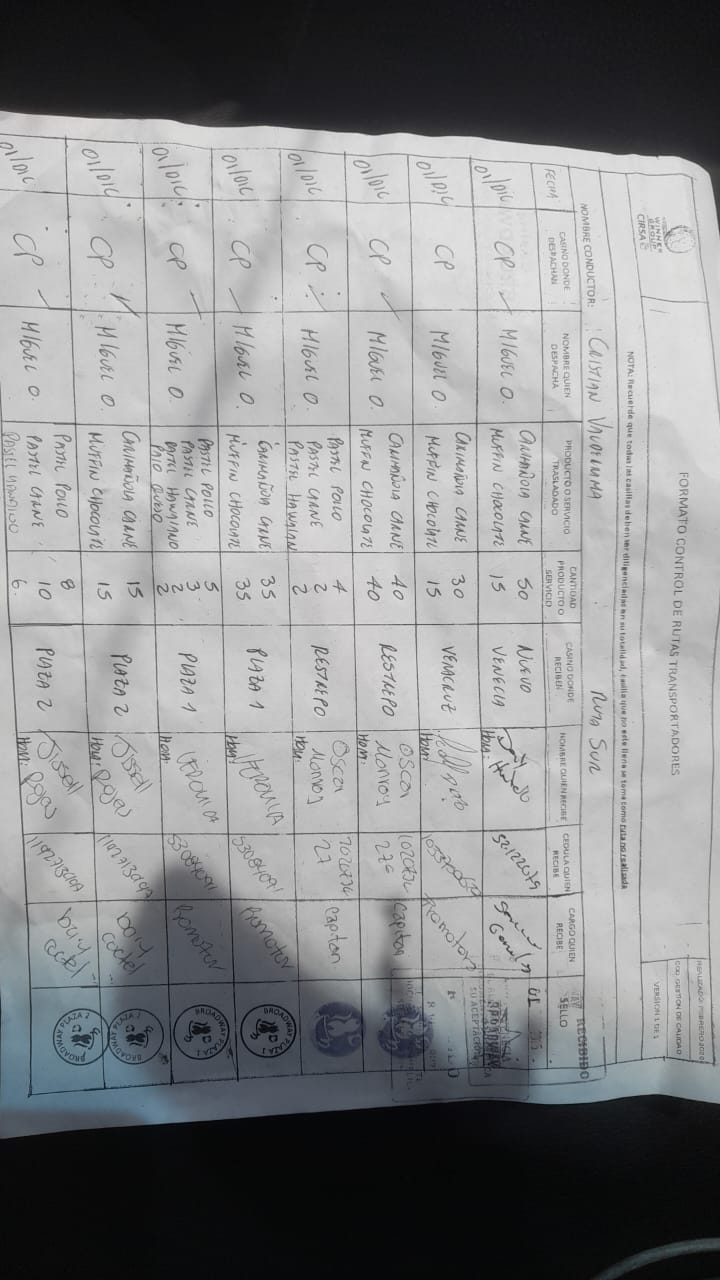 WINNER
GROUP
CIRSA
FORMATO CONTROL DE RUTAS TRANSPORTADORES
COD GESTION DE CALIDAD
VERSION 1 DE 1
NOTA: Recuerde que todas las casillas deben ser diligenciadas en su totalidad, casilla que no este llena se toma como ruta no realizada
NOMBRE CONDUCTOR: CRISTIAN VALDERRAMA RUTA SUR
FECHA
CASINO DONDE DESPACHAN
NOMBRE QUIEN DESPACHA
PRODUCTO O SERVICIO TRASLADADO
CANTIDAD PRODUCTO O SERVICIO
CASINO DONDE RECIBEN
NOMBRE QUIEN RECIBE
CEDULA QUIEN RECIBE
CARGO QUIEN RECIBE
SELLO
RECIBIDO
01/DIC CP MIGUEL O. CARIMAÑOLA CARNE 50 NUEVO
MUFFIN CHOCOLATE 15 VENECIA
Hora:
01/DIC CP MIGUEL O. CARIMAÑOLA CARNE 30 VERACRUZ Promotora
MUFFIN CHOCOLATE 15
Hora:
01/DIC CP MIGUEL O. CARIMAÑOLA CARNE 40 RESTREPO Oscar Capitan
MUFFIN CHOCOLATE 40 Monroy
Hora:
01/DIC CP MIGUEL O. PASTEL POLLO 4 RESTREPO Oscar Capitan
PASTEL CARNE 2 Monroy
PASTEL HAWAIANO 2
Hora:
01/DIC CP MIGUEL O. CARIMAÑOLA CARNE 35 PLAZA 1 53004091 Promotor
MUFFIN CHOCOLATE 35
Hora:
BROADWAY PLAZA 1
01/DIC CP MIGUEL O. PASTEL POLLO 5 PLAZA 1 53004091 Promotor
PASTEL CARNE 3
PASTEL HAWAIANO 2
PALO QUESO 2
Hora:
BROADWAY PLAZA 1
01/DIC CP MIGUEL O. CARIMAÑOLA CARNE 15 PLAZA 2 Jissel
MUFFIN CHOCOLATE 15 Rojas
Hora:
BROADWAY PLAZA 2
01/DIC CP MIGUEL O. PASTEL POLLO 8 PLAZA 2 Jissel
PASTEL CARNE 10 Rojas
PASTEL HAWAIANO 6
Hora:
BROADWAY PLAZA 2